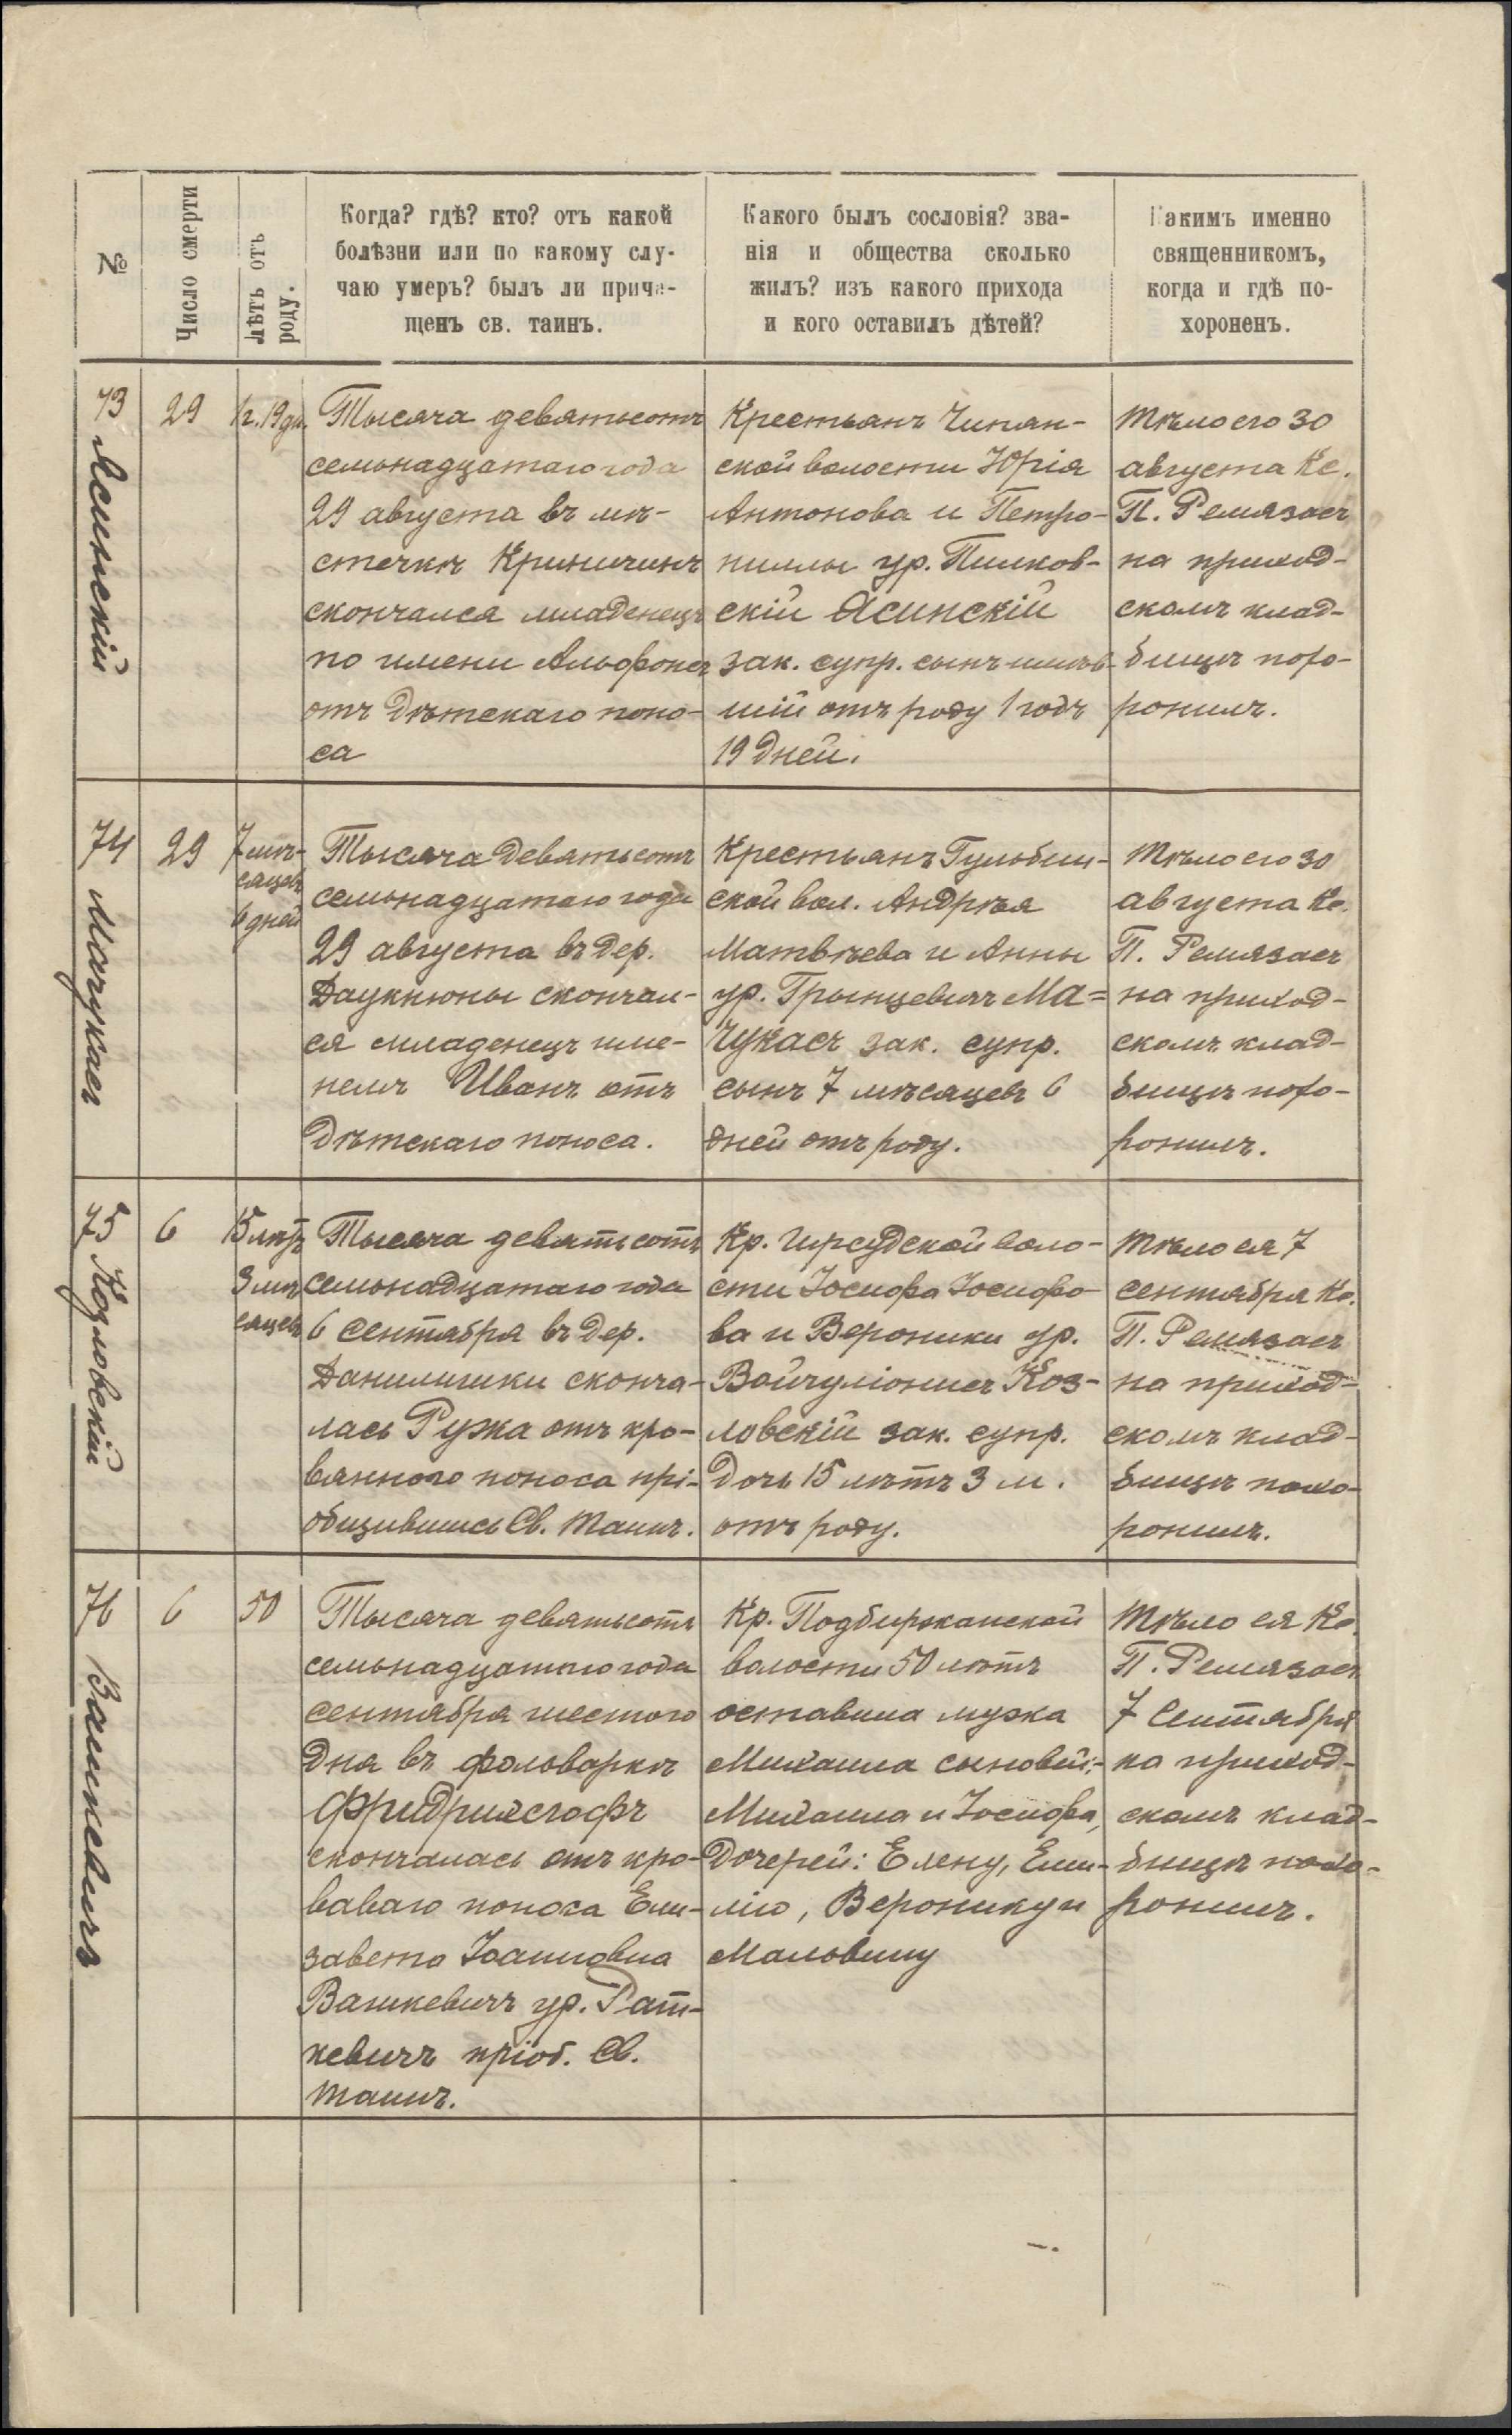 №
Число смерти
лѣтъ отъ
роду.
Когда? гдѣ? кто? отъ какой
болѣзни или по какому слу-
чаю умеръ? былъ ли прича-
щенъ св. таинъ.
Какого былъ сословія? зва-
нія и общества сколько
жилъ? изъ какого прихода
и кого оставилъ дѣтей?
Какимъ именно
священникомъ,
когда и гдѣ по-
хороненъ.
73
Ясинскій
29
1г. 19 дн.
Тысяча девятьсотъ
семьнадцатаго года
29 августа въ мѣ-
стечкѣ Криничинъ
скончался младенецъ
по имени Альфонсъ
отъ дѣтскаго поно-
са
Крестьянъ Чипян-
ской волости Юрія
Антонова и Петро-
ниллы ур. Пилков-
скій Ясинскій
зак. супр. сынъ имѣв-
шій отъ роду 1 годъ
19 дней.
Тѣло его 30
августа Кс.
П. Ремязасъ
на приход-
скомъ клад-
бищѣ похо-
ронилъ.
74
Мачукасъ
29
7 мѣ-
сяцевъ
6 дней
Тысяча девятьсотъ
семьнадцатаго года
29 августа въ дер.
Даукнюны скончал-
ся младенецъ име-
немъ Иванъ отъ
дѣтскаго поноса.
Крестьянъ Гульбин-
ской вол. Андрѣя
Матвѣева и Анны
ур. Грынцевичъ Ма=
чукасъ зак. супр.
сынъ 7 мѣсяцевъ 6
дней отъ роду.
Тѣло его 30
августа Кс.
П. Ремязасъ
на приход-
скомъ клад-
бищѣ похо-
ронилъ.
75
Козловскій
6
15 лѣтъ
3 мѣ
сяцевъ
Тысяча девятьсотъ
семьнадцатаго года
6 сентября въ дер.
Данилишки сконча-
лась Ружа отъ кро-
вянного поноса прі-
общившись Св. Таинъ.
Кр. Гирсудской воло-
сти Іосифа Іосифо-
ва и Вероники ур.
Войчуліонисъ Коз-
ловскій зак. супр.
дочь 15 лѣтъ 3 м.
отъ роду.
Тѣло ея 7
сентября Кс.
П. Ремязасъ
на приход-
скомъ клад-
бищѣ похо-
ронилъ.
76
Вашкевичъ
6
50
Тысяча девятьсотъ
семьнадцатаго года
сентября шестого
дня въ фольваркѣ
Фридрихсгофъ
скончалась отъ кро-
ваваго поноса Ели-
завета Іоанновна
Вашкевичъ ур. Рат-
кевичъ пріоб. Св.
Таинъ.
Кр. Подбиржанской
волости 50 лѣтъ
оставила мужа
Михаила сыновей:-
Михаила и Іосифа,
дочерей: Елену, Еми-
лію, Веронику и
Мальвину
Тѣло ея Кс.
П. Ремязасъ
7 Сентября
на приход-
скомъ клад-
бищѣ похо-
ронилъ.